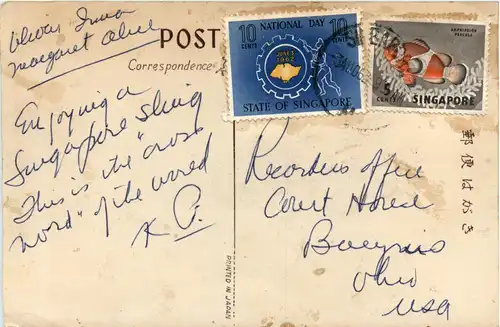 POST
Correspondence
margaret
Enjoying a
Singapore sling
This is the "cross
word" of the world
K P.
10 NATIONAL DAY 10
CENTS
JUNE 3
1962
STATE OF SINGAPORE
5
CENTS SINGAPORE
Recorders office
Court House
Ohio
USA
郵便はがき
PRINTED IN JAPAN